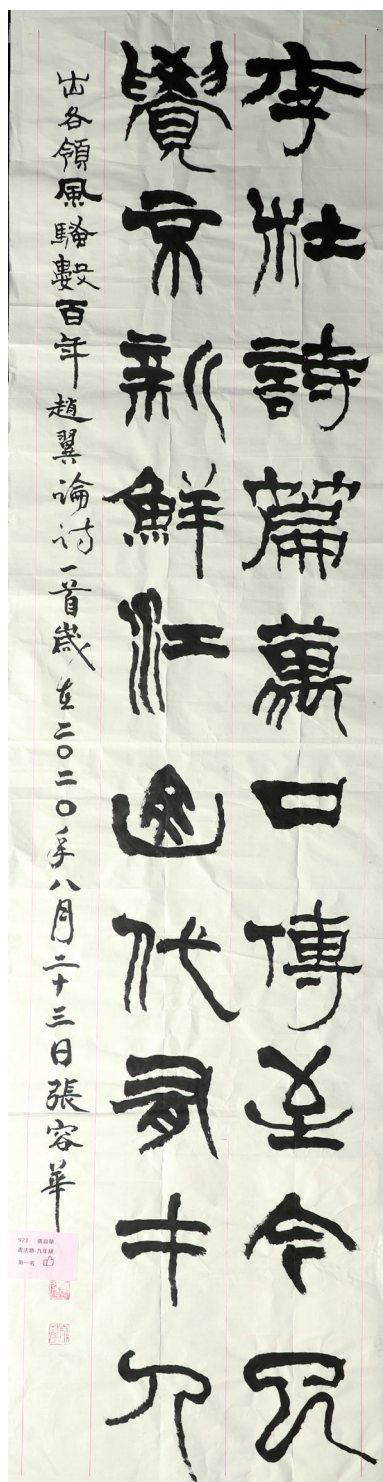 李杜詩篇萬口傳至今已
覺不新鮮江山代有才人
出各領風騷數百年 趙翼論诗一首歲在二〇二〇年八月二十三日張容華
923 張容華
書法類-九年級
第一名